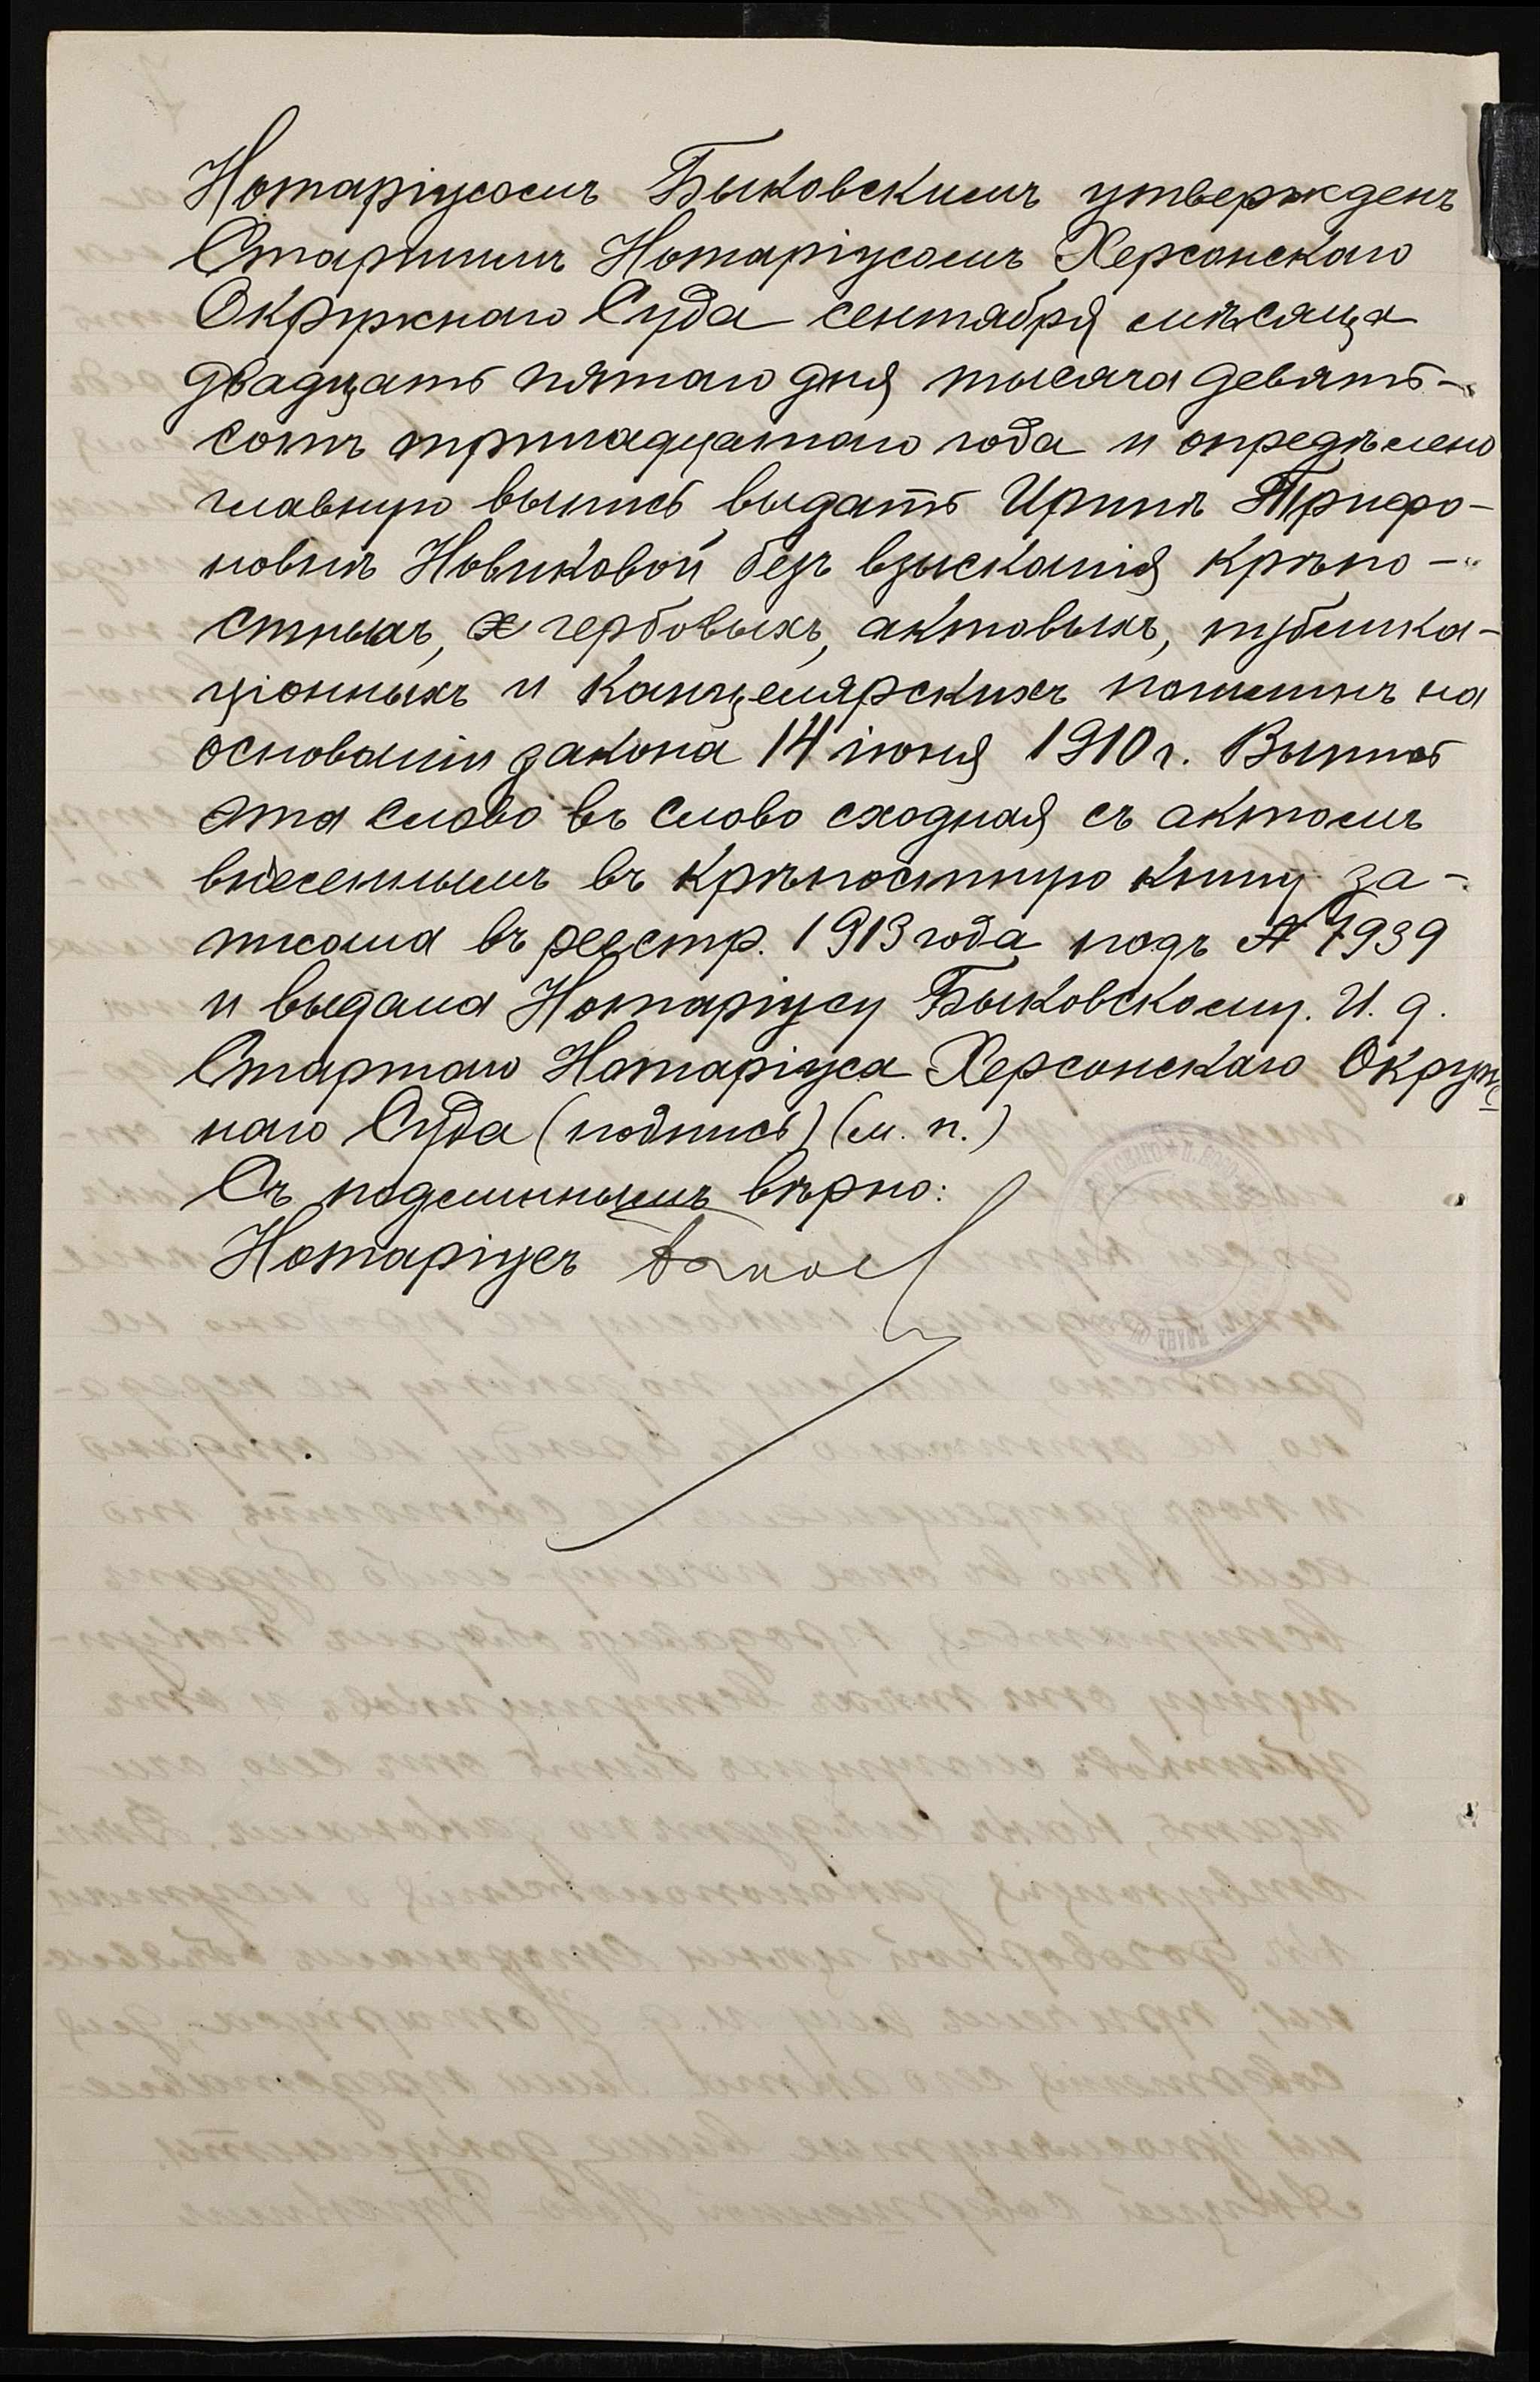 Нотаріусомъ Быковскимъ утвержденъ
Старшимъ Нотаріусомъ Херсонскаго
Окружнаго Суда сентября мѣсяца
двадцать пятаго дня тысяча девять-
сотъ тринадцатаго года и опредѣлено
главную выпись выдать Иринѣ Трифо-
новнѣ Новиковой безъ взысканія крѣпо-
стныхъ, гербовыхъ, актовыхъ, публика-
ціонныхъ и канцелярскихъ пошлинъ на
основаніи закона 14 іюня 1910 г. Выпись
эта слово въ слово сходная съ актомъ
внесеннымъ въ крѣпостную книгу за-
писана въ реестр. 1913 года подъ № 7939
и выдана Нотаріусу Быковскому. И. д.
Старшаго Нотаріуса Херсонскаго Окруж-
наго Суда (подпись) (м. п.)
Съ подлиннымъ вѣрно:
Нотаріусъ